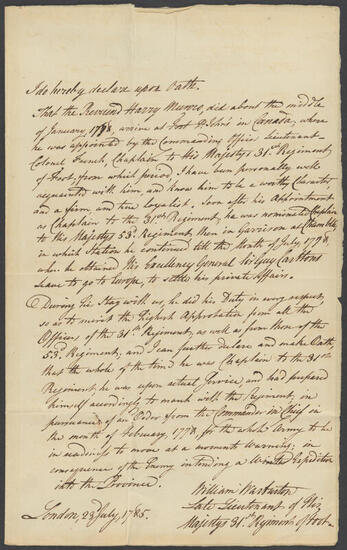 I do hereby declare upon Oath.
That the Reverend Harry Munro, did about the middle
of January, 1778, arrive at Fort St. John's in Canada, where
he was appointed by the Commanding Officer Lieutenant-
Colonel French, Chaplain to His Majestys 31st Regiment
of Foot, from which period, I have been personally well
acquainted with him, and know him to be a worthy Character,
and a firm, and true loyalist. Soon after his Appointment
as Chaplain to the 31st Regiment, he was nominated Chaplain
to His Majestys 53d Regiment, then in Garrison at Chamblee,
in which station he continued till the Month of July, 1778,
when he obtained His Excellency General Sir Guy Carltons
leave to go to Europe, to settle his private Affairs.
During his Stay with us, he did his Duty in every respect,
so as to merit the highest Approbation from all the
Officers of the 31st Regiment, as well as from those of the
53d Regiment, and I can further declare and make Oath,
that the whole of the time he was Chaplain to the 31st
Regiment, he was upon actual Service and had prepared
himself accordingly to march with the Regiment, on
pursuance of an Order from the Commander in Chief in
the month of February, 1778, for the whole Army to be
in readiness to move at a moments Warning, in
consequence of the Enemy intending a Winter Expedition
into the Province.
William Warburton
Late Lieutenant of His
London, 23d July, 1785. Majestys 31st Regiment of Foot